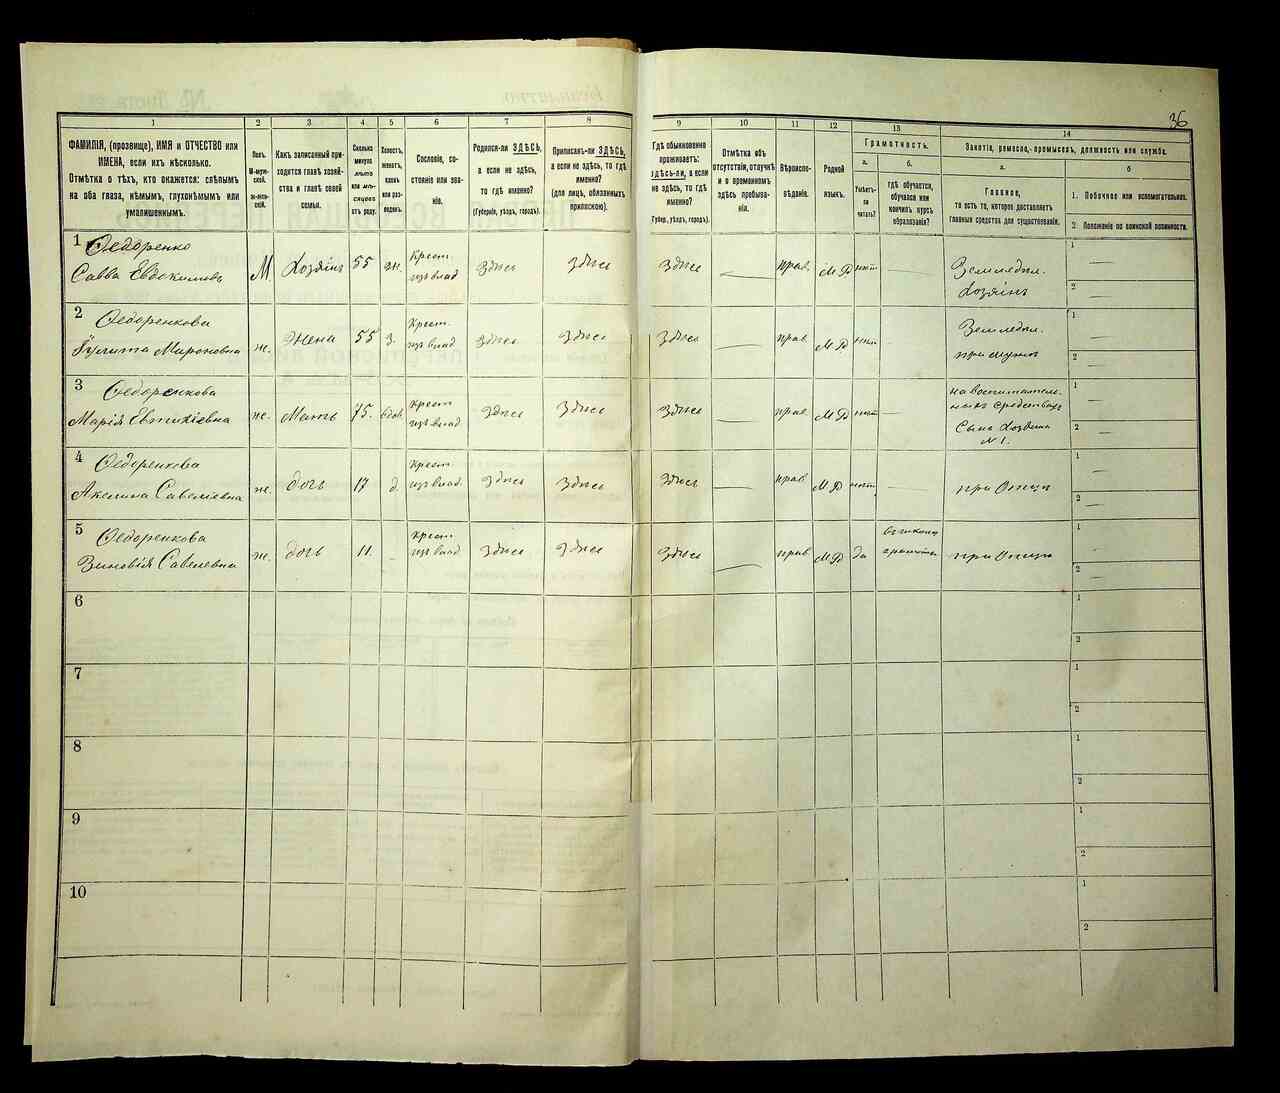 36
1 2 3 4 5 6 7 8 9 10 11 12 13 14
ФАМИЛІЯ, (прозвище), ИМЯ и ОТЧЕСТВО или
ИМЕНА, если ихъ нѣсколько.
Отмѣтка о тѣхъ, кто окажется: слѣпымъ
на оба глаза, нѣмымъ, глухонѣмымъ или
умалишеннымъ.
Полъ.
М-муж-
ской.
ж-жен-
скій.
Какъ записанный при-
ходится главѣ хозяй-
ства и главѣ своей
семьи.
Сколько
минуло
лѣтъ
или мѣ-
сяцевъ
отъ роду.
Холостъ,
женатъ,
вдовъ
или раз-
веденъ.
Сословіе, со-
стояніе или зва-
ніе.
Родился-ли ЗДѢСЬ,
а если не здѣсь,
то гдѣ именно?
(Губернія, уѣздъ, городъ).
Приписанъ-ли ЗДѢСЬ,
а если не здѣсь, то гдѣ
именно?
(для лицъ, обязанныхъ
припискою).
Гдѣ обыкновенно
проживаетъ:
здѣсь-ли, а если
не здѣсь, то гдѣ
именно?
(Губер., уѣздъ, городъ).
Отмѣтка объ
отсутствіи, отлучкѣ
и о временномъ
здѣсь пребыва-
ніи.
Вѣроиспо-
вѣданіе.
Родной
языкъ.
Грамотность.
а.
Умѣетъ-
ли
читать?
б.
гдѣ обучается,
обучался или
кончилъ курсъ
образованія?
Занятіе, ремесло, промыселъ, должность или служба.
а.
Главное,
то есть то, которое доставляетъ
главныя средства для существованія.
б
1. Побочное или вспомогательное.
2. Положеніе по воинской повинности.
1 Федоренко
Савва Евдокимовъ М Хозяинъ 55 ж. Крест. изъ влад Здѣсь Здѣсь Здѣсь — прав. МР нѣт — Земледѣл. Хозяинъ 1 — 2 —
2 Федоренкова
Мироновна ж. Жена 55 з. Крест. изъ влад Здѣсь Здѣсь Здѣсь — прав. МР нѣт — Земледѣл. при мужѣ 1 — 2 —
3 Федоренкова
Марія Евтихіевна ж. Мать 75. вдов. крест изъ влад Здѣсь Здѣсь Здѣсь — прав. МР нѣт — Сына Хозяина № 1. 1 — 2 —
4 Федоренкова
Акелина Савеліевна ж. дочь 17 д. Крест изъ влад. Здѣсь Здѣсь Здѣсь — прав. МР нѣт. — при Отцѣ 1 — 2 —
5 Федоренкова
Зиновія Савелевна ж. дочь 11. — крест изъ влад Здѣсь Здѣсь Здѣсь — прав МР да при Отцѣ 1 — 2 —
6 1 2
7 1 2
8 1 2
9 1 2
10 1 2